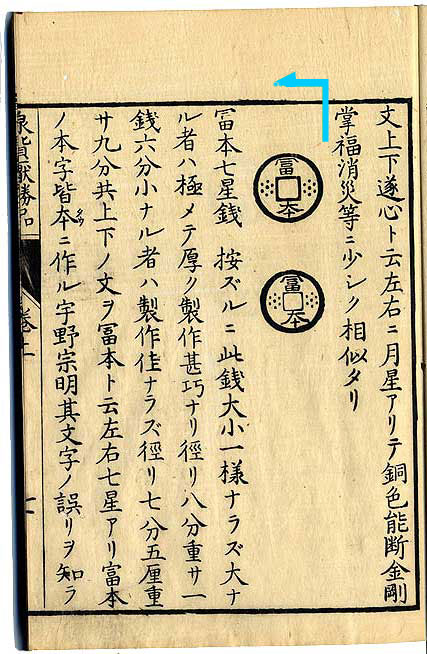 文上下遂心ト云左右ニ月星アリテ銅色能断金剛
掌福消災等ニ少シク相似タリ
冨夲
冨夲
冨本七星銭 按ズルニ此銭大小一様ナラズ大ナ
ル者ハ極メテ厚ク製作甚巧ナリ徑リ八分重サ一
銭六分小ナル者ハ製作佳ナラズ徑リ七分五厘重
サ九分共上下ノ文ヲ冨本ト云左右七星アリ富本
ノ本字皆夲ニ作ル宇野宗明其文字ノ誤リヲ知ラ
勝品